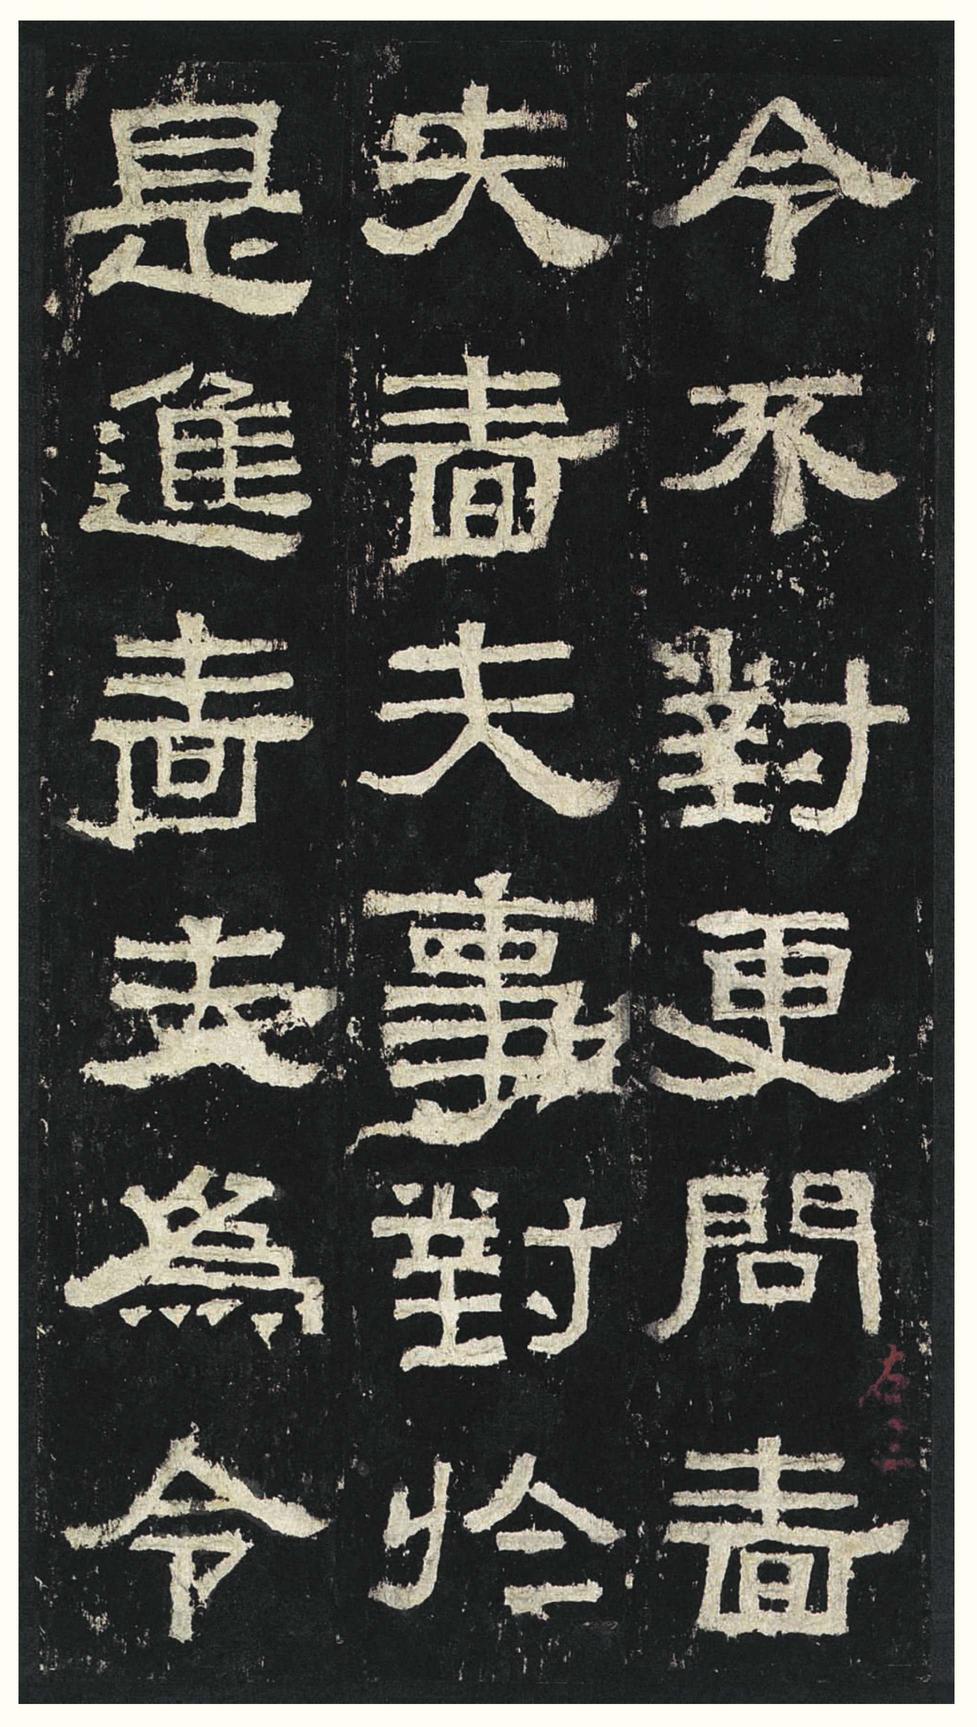 令不對更問嗇
夫嗇夫事對於
是進嗇夫為令